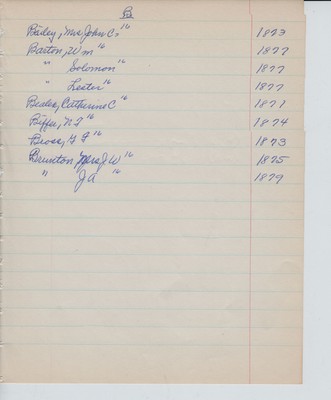 B
Bailey, Mrs John C. 16 1873
Barton, Wm 16 1877
" Solomon 16 1877
" Lester 16 1877
Catherine C 16 1871
16 1874
16 1873
Brunton, Mrs J. W 16 1875
" J A 16 1879